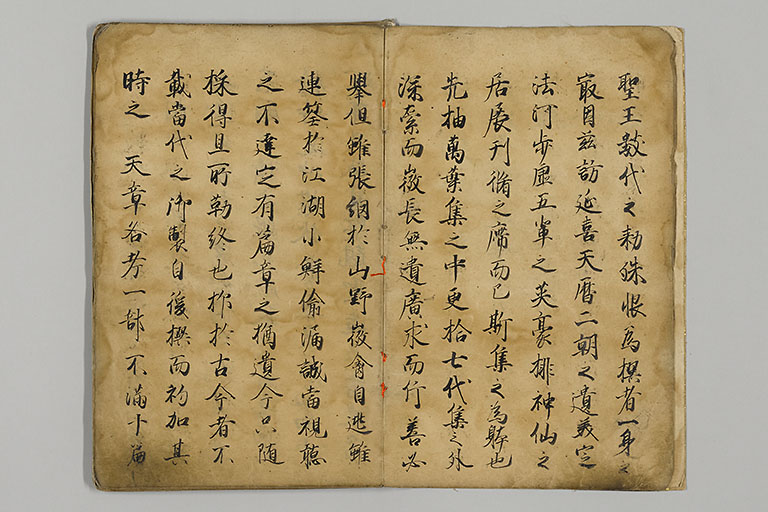 聖王數代之勅殊恨為撰者一身之
最因茲訪延喜天曆二朝之遺美定
法河步虛五輩之英豪排神仙之
居展刊脩之席而已斯集之為躰也
先抽萬葉集之中更拾七代集之外
深索而微長無遺廣求而片善必
舉但雖張網於山野微禽自逃雖
連筌於江湖小鮮偷漏誠當視聽
之不達定有篇章之猶遺今只隨
採得且所勒終也抑於古今者不
載當代之御製自後撰而初加其
時之 天章各考一部不滿十篇